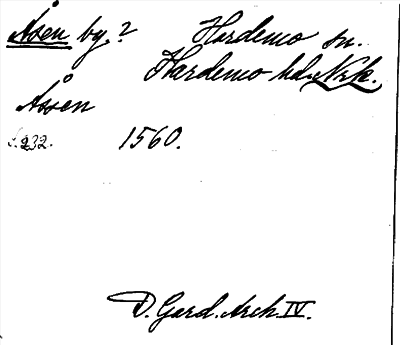 Åsen by? Hardemo sn.
Hardemo hd. Nrk.
Åsen
s. 232. 1560.
D. Gard. Arch. IV.